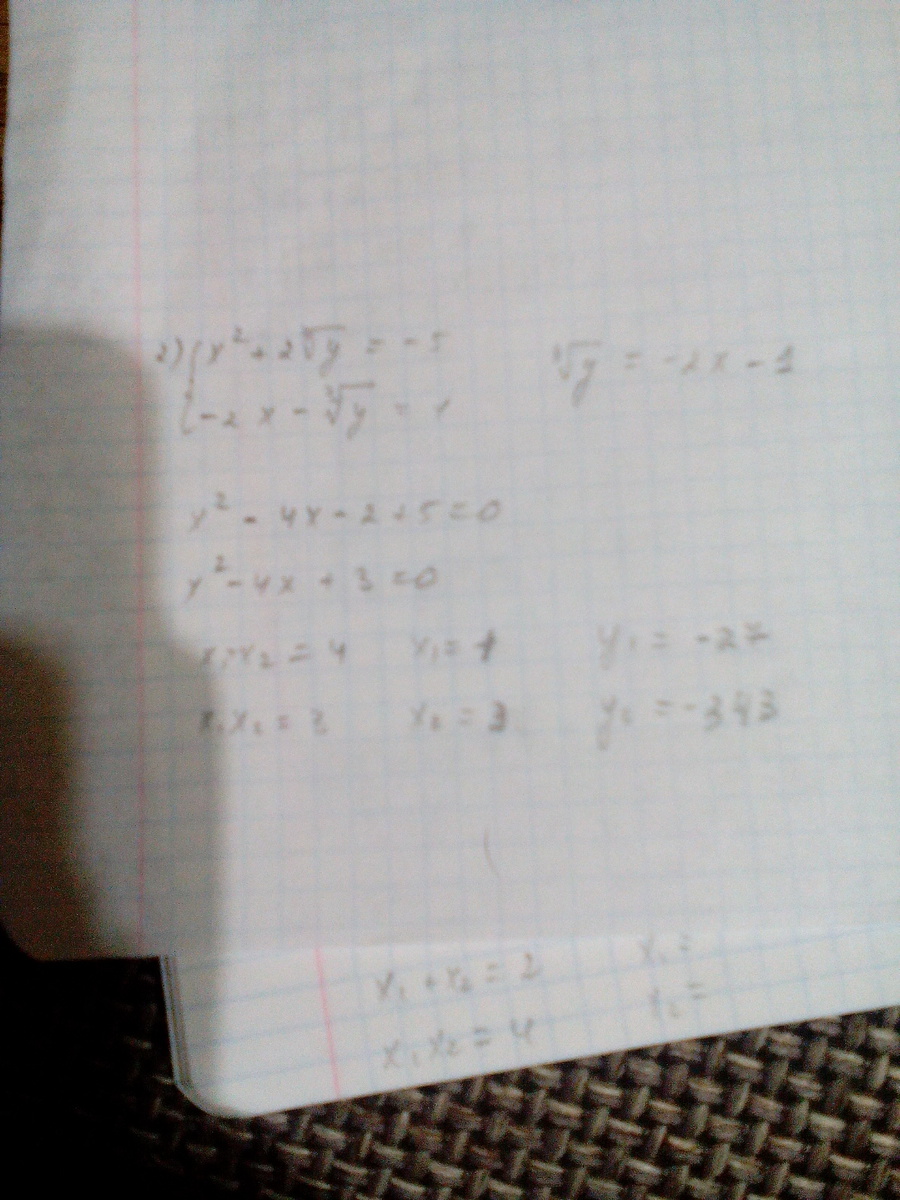 2) { x² + 2∛y = -5
∛y = -2x - 1
{ -2x - ∛y = 1
x² - 4x - 2 + 5 = 0
x² - 4x + 3 = 0
x₁+x₂ = 4   x₁ = 1   y₁ = -27
x₁x₂ = 3   x₂ = 3   y₂ = -343
x₁ + x₂ = 2   x₁ =
x₁x₂ = 4   x₂ =